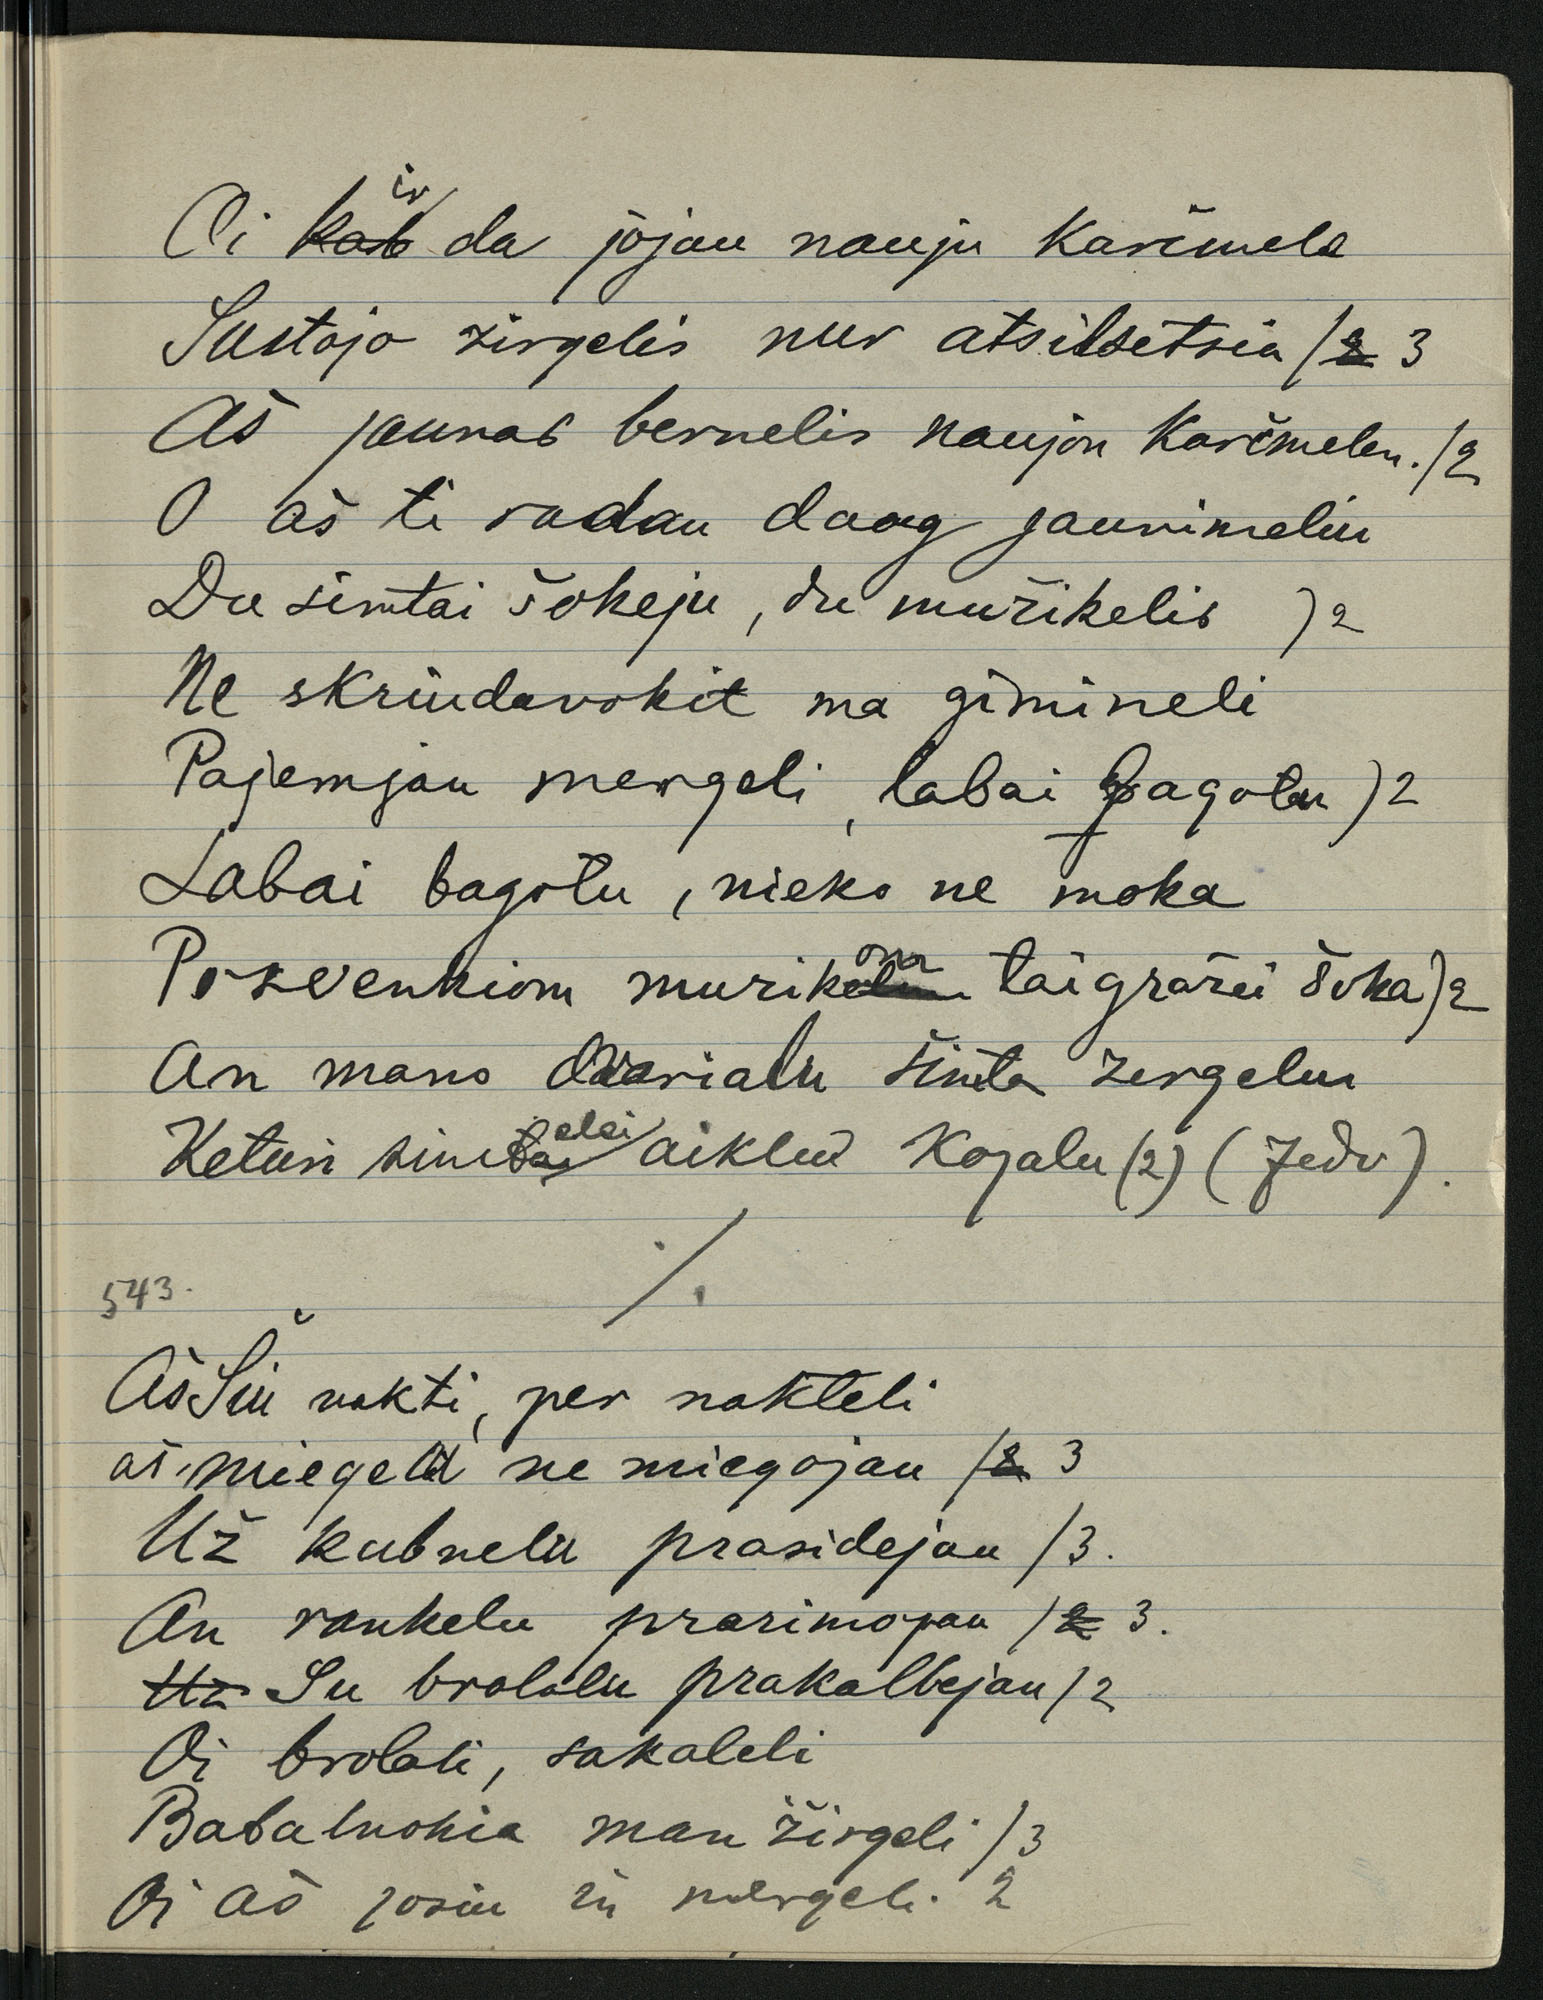 Oi ir da jojau nauju Karčmela
Sustojo zirgelis nur atsilsetsia /3
Aš jaunas bernelis naujon Karčmelen. /2
O aš ti radau daug jaunimeliu
Du simtai šokeju, du mužikelis )2
Ne skriudavokit ma gimineli
Pajemjau mergeli, labai bagotu )2
Labai bagotu, nieko ne moka
Pośvenkiom muzikom tai gražei šoka )2
An mano dvarialu šimta zergelu
Keturi simtelai aiklus Kojalu (2) (Jedv).
./.
543.
Aš Šiu nakti, per nakteli
aš miegelu ne miegojau /3
Už kubnelu prasidejau /3.
An rankelu prarimojau /3.
Su brolalu prakalbejau /2
Oi brolali, sakaleli
Babalnokia man žirgeli /3
Oi aš josiu in mergeli. 2